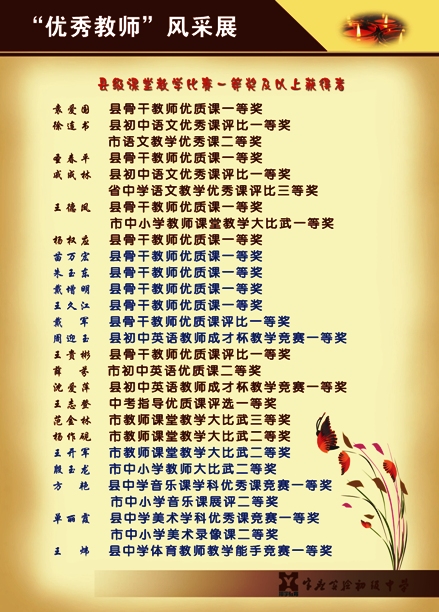 “优秀教师”风采展
县级课堂教学比赛一等奖及以上获得者
袁爱国 县骨干教师优质课一等奖
徐道书 县初中语文优秀课评比一等奖
市语文教学优秀课二等奖
童春平 县骨干教师优质课一等奖
戚成林 县初中语文优秀课评比一等奖
省中学语文教学优秀课评比三等奖
王德凤 县骨干教师优质课一等奖
市中小学教师课堂教学大比武一等奖
杨权应 县骨干教师优质课一等奖
苗万宏 县骨干教师优质课一等奖
朱玉东 县骨干教师优质课一等奖
戴增明 县骨干教师优质课一等奖
王久江 县骨干教师优质课一等奖
戴军 县骨干教师优质课评比一等奖
周迎玉 县初中英语教师成才杯教学竞赛一等奖
王贵彬 县骨干教师优质课评比一等奖
薛芬 市初中英语优质课二等奖
沈爱萍 县初中英语教师成才杯教学竞赛一等奖
王志登 中考指导优质课评选一等奖
范金林 市教师课堂教学大比武三等奖
杨作砚 市教师课堂教学大比武二等奖
王开军 市教师课堂教学大比武二等奖
殷玉龙 市中小学教师大比武二等奖
方艳 县中学音乐课学科优秀课竞赛一等奖
市中小学音乐课展评二等奖
单丽霞 县中学美术学科优秀课竞赛一等奖
市中小学美术录像课二等奖
王炜 县中学体育教师教学能手竞赛一等奖
实验初级中学